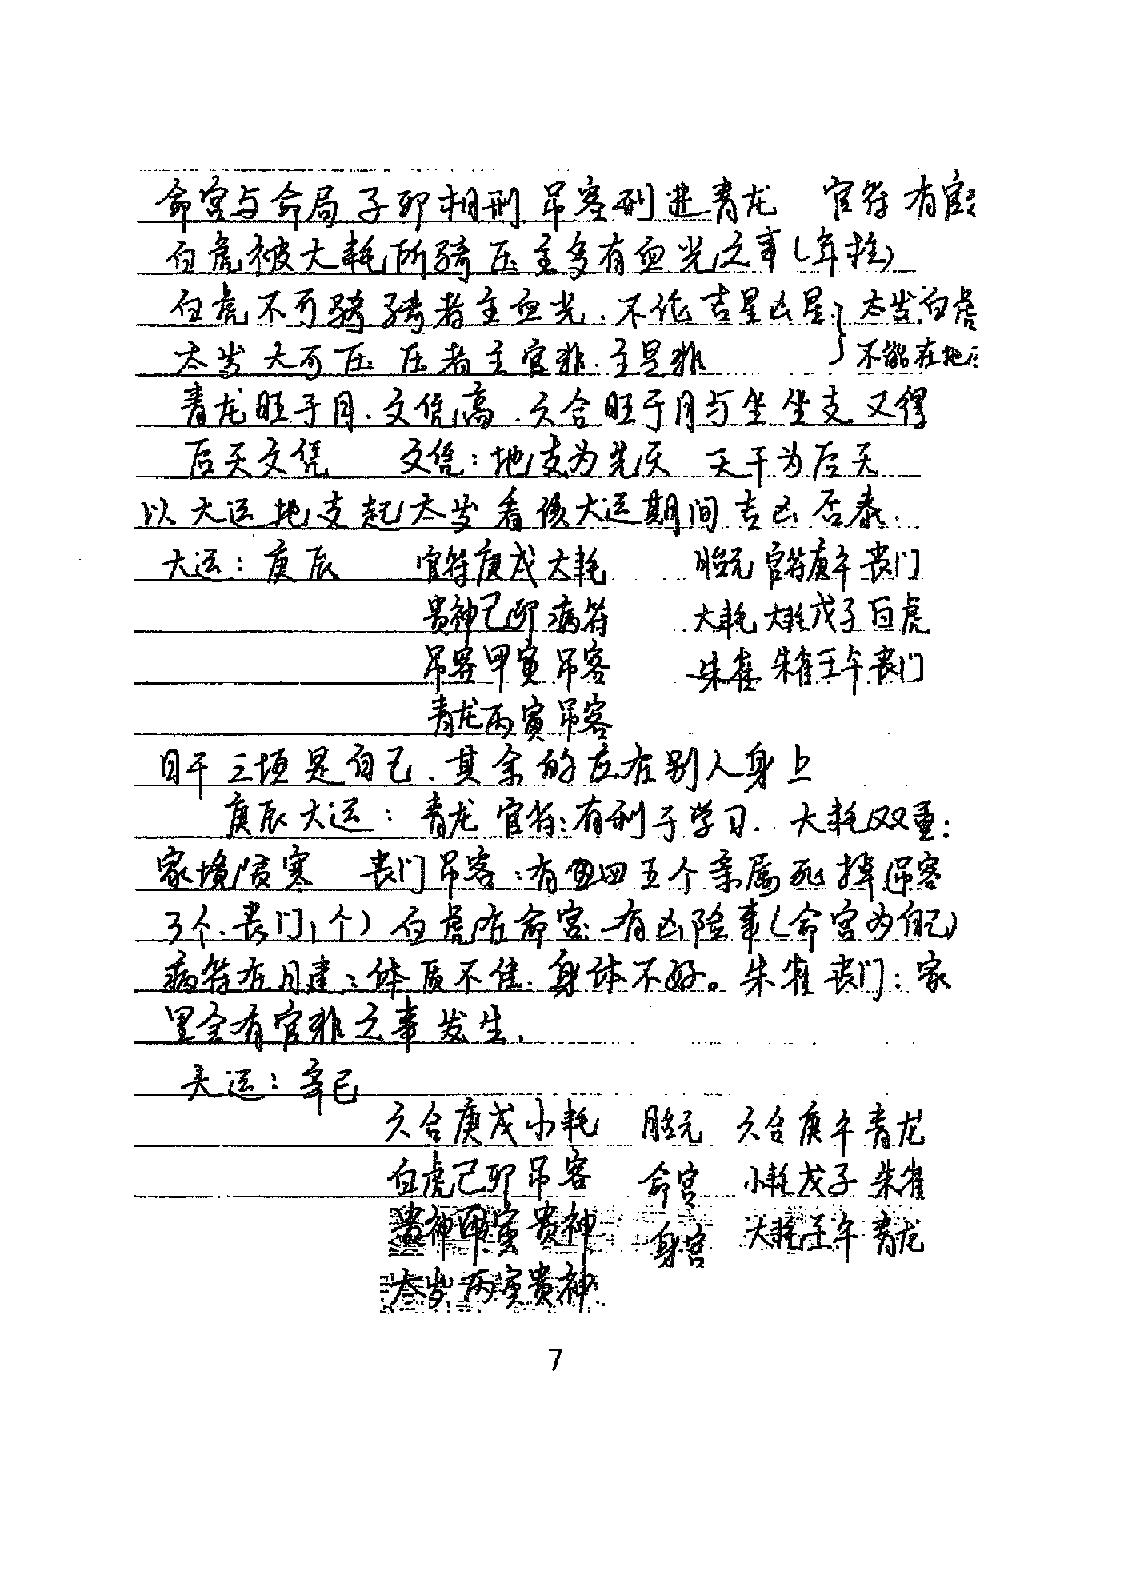 命宫与命局子卯相刑 吊客刑进青龙 官符有官
白虎被大耗所骑压主多有血光之事(年柱)
白虎不可骑 骑者主血光.不论吉星凶星 太岁.白虎
太岁大可压 压者主官非.主是非 不能在地
青龙旺于月.文凭高.六合旺于月与坐坐支又得
后天文凭 文凭:地支为先天 天干为后天
以大运地支起太岁看该大运期间吉凶否泰.
大运:庚辰 官符庚戌大耗 胎元 官符庚午丧门
贵神己卯病符 大耗 大耗戊子白虎
吊客甲寅吊客 朱雀 朱雀壬午丧门
青龙丙寅吊客
日干三项是自己.其余的应在别人身上
庚辰大运:青龙官符:有利于学习.大耗双重:
家境贫寒 丧门吊客:有四五个亲属死掉(吊客
3个.丧门1个)白虎居命宫:有凶险事(命宫为自己)
病符在月建:体质不佳.身体不好。朱雀丧门:家
里会有官非之事发生.
大运:辛巳
六合庚戌小耗 胎元 六合庚午青龙
白虎己卯吊客 命宫 小耗戊子朱雀
贵神甲寅贵神 身宫 大耗壬午青龙
太岁丙寅贵神
7